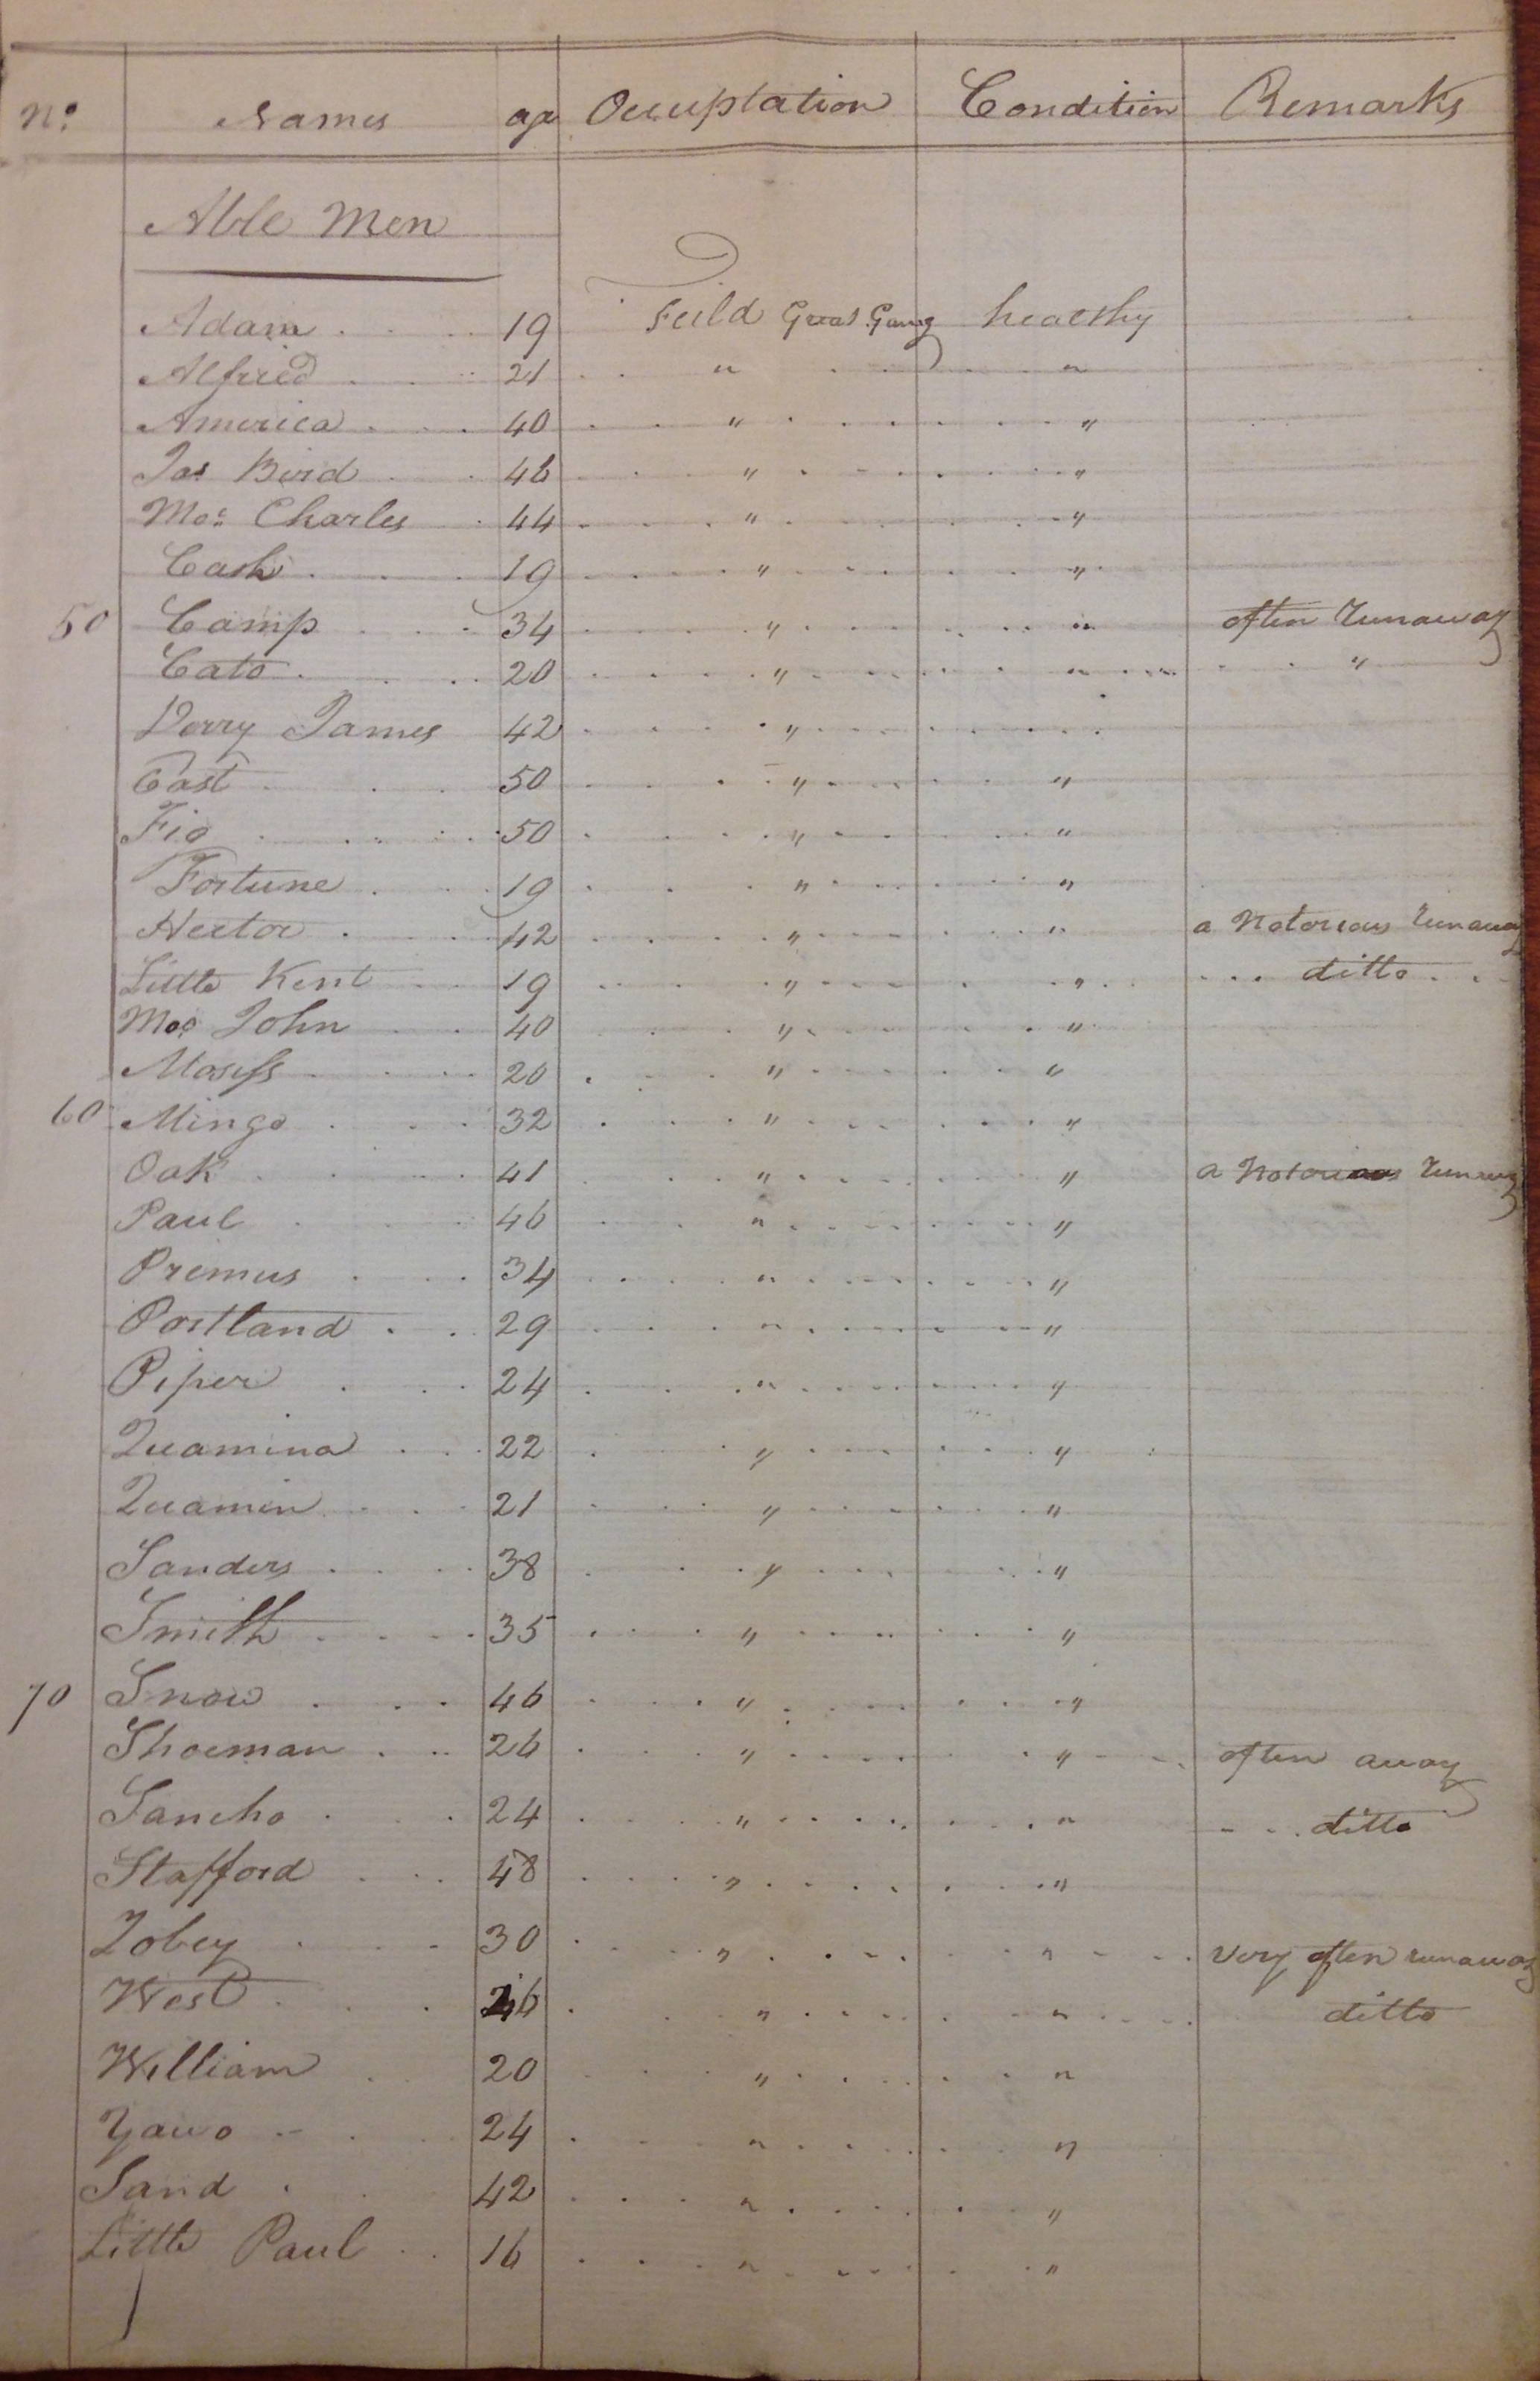 No. Names age Occuptation Condition Remarks
Able Men
Adam 19 Feild Great Gang healthy
Alfried 21 " "
America 40 " "
Jas Bird 46 " "
Mos: Charles 44 " "
Cash 19 " "
50 Camp 34 " " often runaway
Cato 20 " " "
Derry James 42 "
East 50 " "
Fig 50 " "
Fortune 19 " "
Hector 42 " " a Notorious runaway
Little Kent 19 " " ditto
Mos John 40 " "
Moses 20 " "
60 Mingo 32 " "
Oak 41 " " a Notorious runaway
Paul 46 " "
Premus 34 " "
Portland 29 " "
Piper 24 " "
Quamina 22 " "
Quamin 21 " "
Sanders 38 " "
Smith 35 " "
70 Snow 46 " "
Shoeman 26 " " often away
Sancho 24 " " ditto
Stafford 48 " "
Tobey 30 " " very often runaway
West 26 " " ditto
William 20 " "
Yawo 24 " "
Sand 42 " "
Little Paul 16 " "